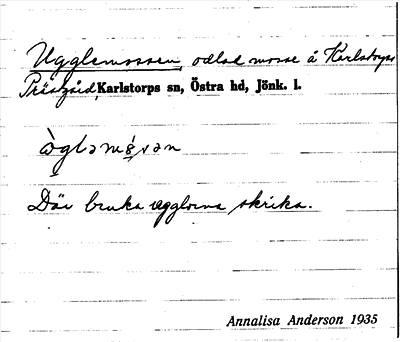 Ugglemossen, odlad mosse å Karlstorps
Prästgård, Karlstorps sn, Östra hd, Jönk. l.
Där bruka ugglorna skrika.
Annalisa Anderson 1935